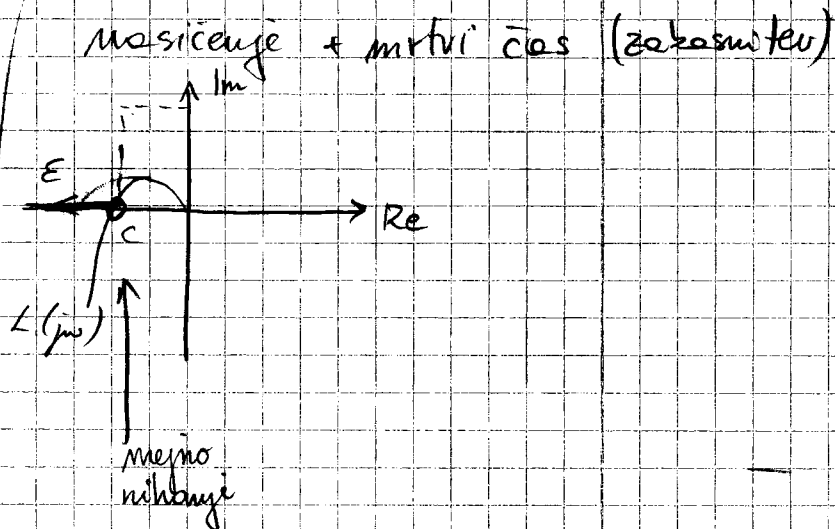 nasičenje + mrtvi čas (zakasnitev)
Im
ε
Re
C
L(jω)
mejno
nihanje